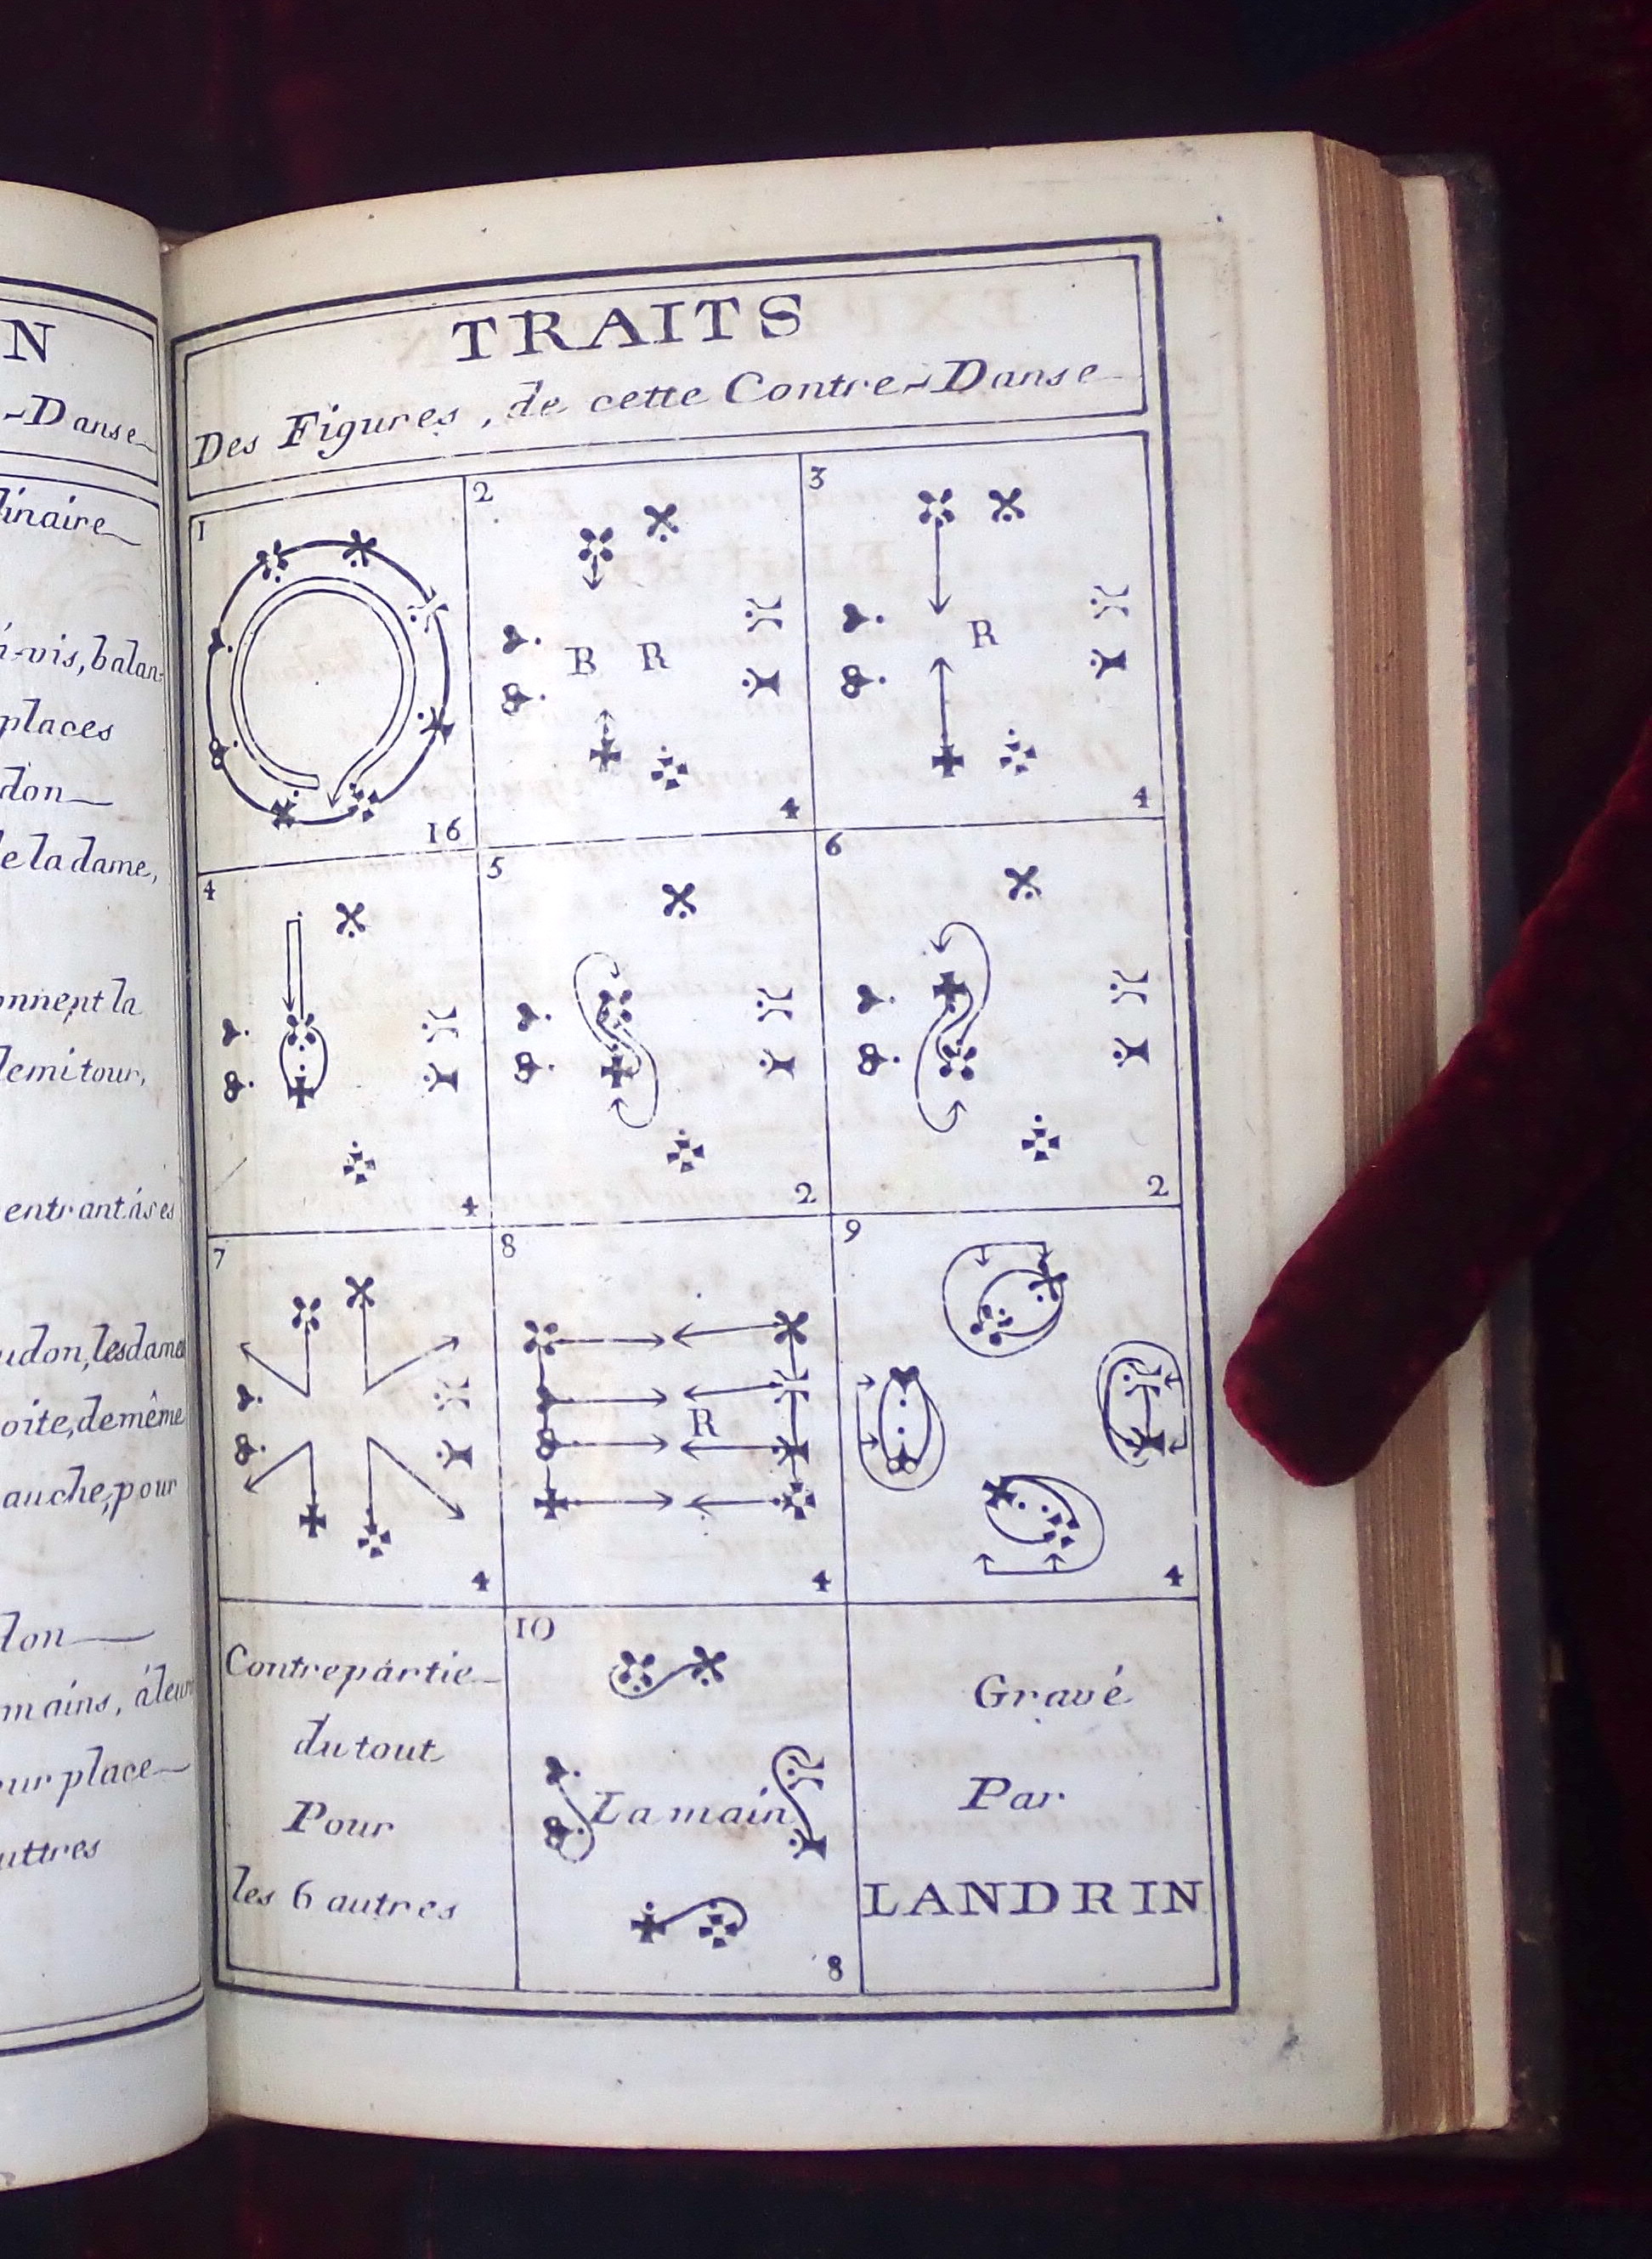 N
-Danse
linaire
i-vis, balan-
places
don
e la dame,
onnent la
demi tour,
entrant á ses
udon, les dames
oite, de même
auche, pour
don
mains, á leur
ur place
uttres
TRAITS
Des Figures, de cette Contre-Danse
1
16
2
B R
4
3
R
4
4
4
5
2
6
2
7
4
8
R
4
9
4
Contrepartie
du tout
Pour
les 6 autres
10
La main
8
Gravé
Par
LANDRIN